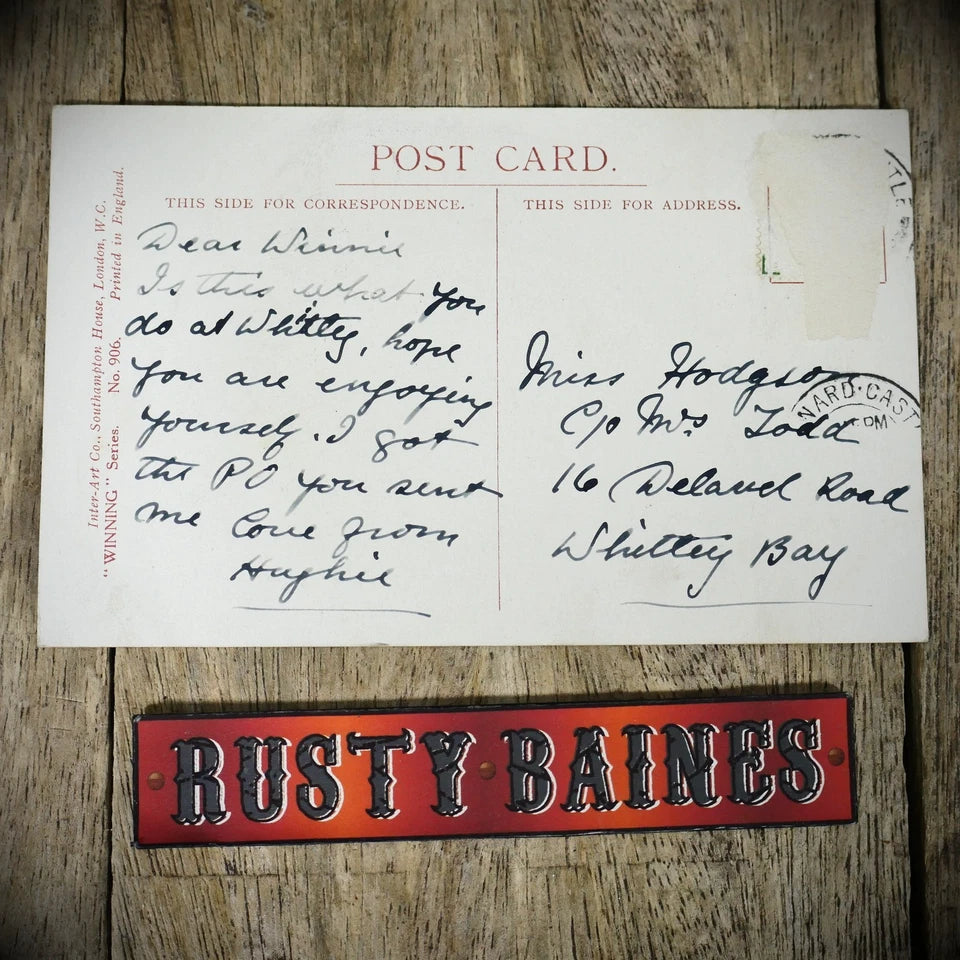 POST CARD.
THIS SIDE FOR CORRESPONDENCE.
THIS SIDE FOR ADDRESS.
Inter-Art Co., Southampton House, London, W.C.
Printed in England.
"WINNING" Series. No. 906.
Dear Winnie
Is this what you
do at Whitley, hope
you are enjoying
yourself. I got
the PO you sent
me Love from
Hughie
Miss Hodgson
C/o Mrs Todd
16 Delavel Road
Whittey Bay
TLE
NARD·CAST
PM
RUSTY BAINES